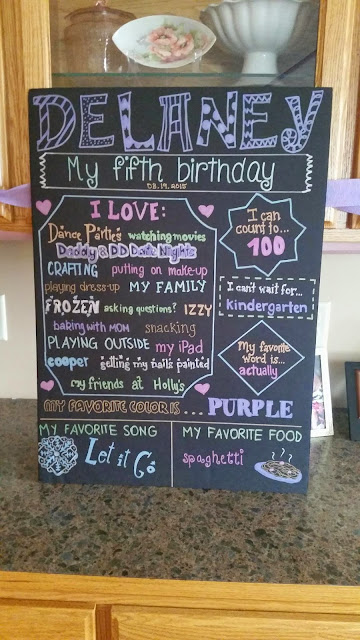 DELANEY
My fifth birthday
08.19.2015
I LOVE:
Dance Parties watching movies
Daddy & DD Date Nights
CRAFTING putting on make-up
playing dress-up MY FAMILY
FROZEN asking questions? IZZY
baking with MOM snacking
PLAYING OUTSIDE my iPad
cooper getting my nails painted
my friends at Holly's
I can
count to...
100
I can't wait for...
Kindergarten
My favorite
word is...
actually
MY FAVORITE COLOR IS... PURPLE
MY FAVORITE SONG
Let it Go
MY FAVORITE FOOD
spaghetti